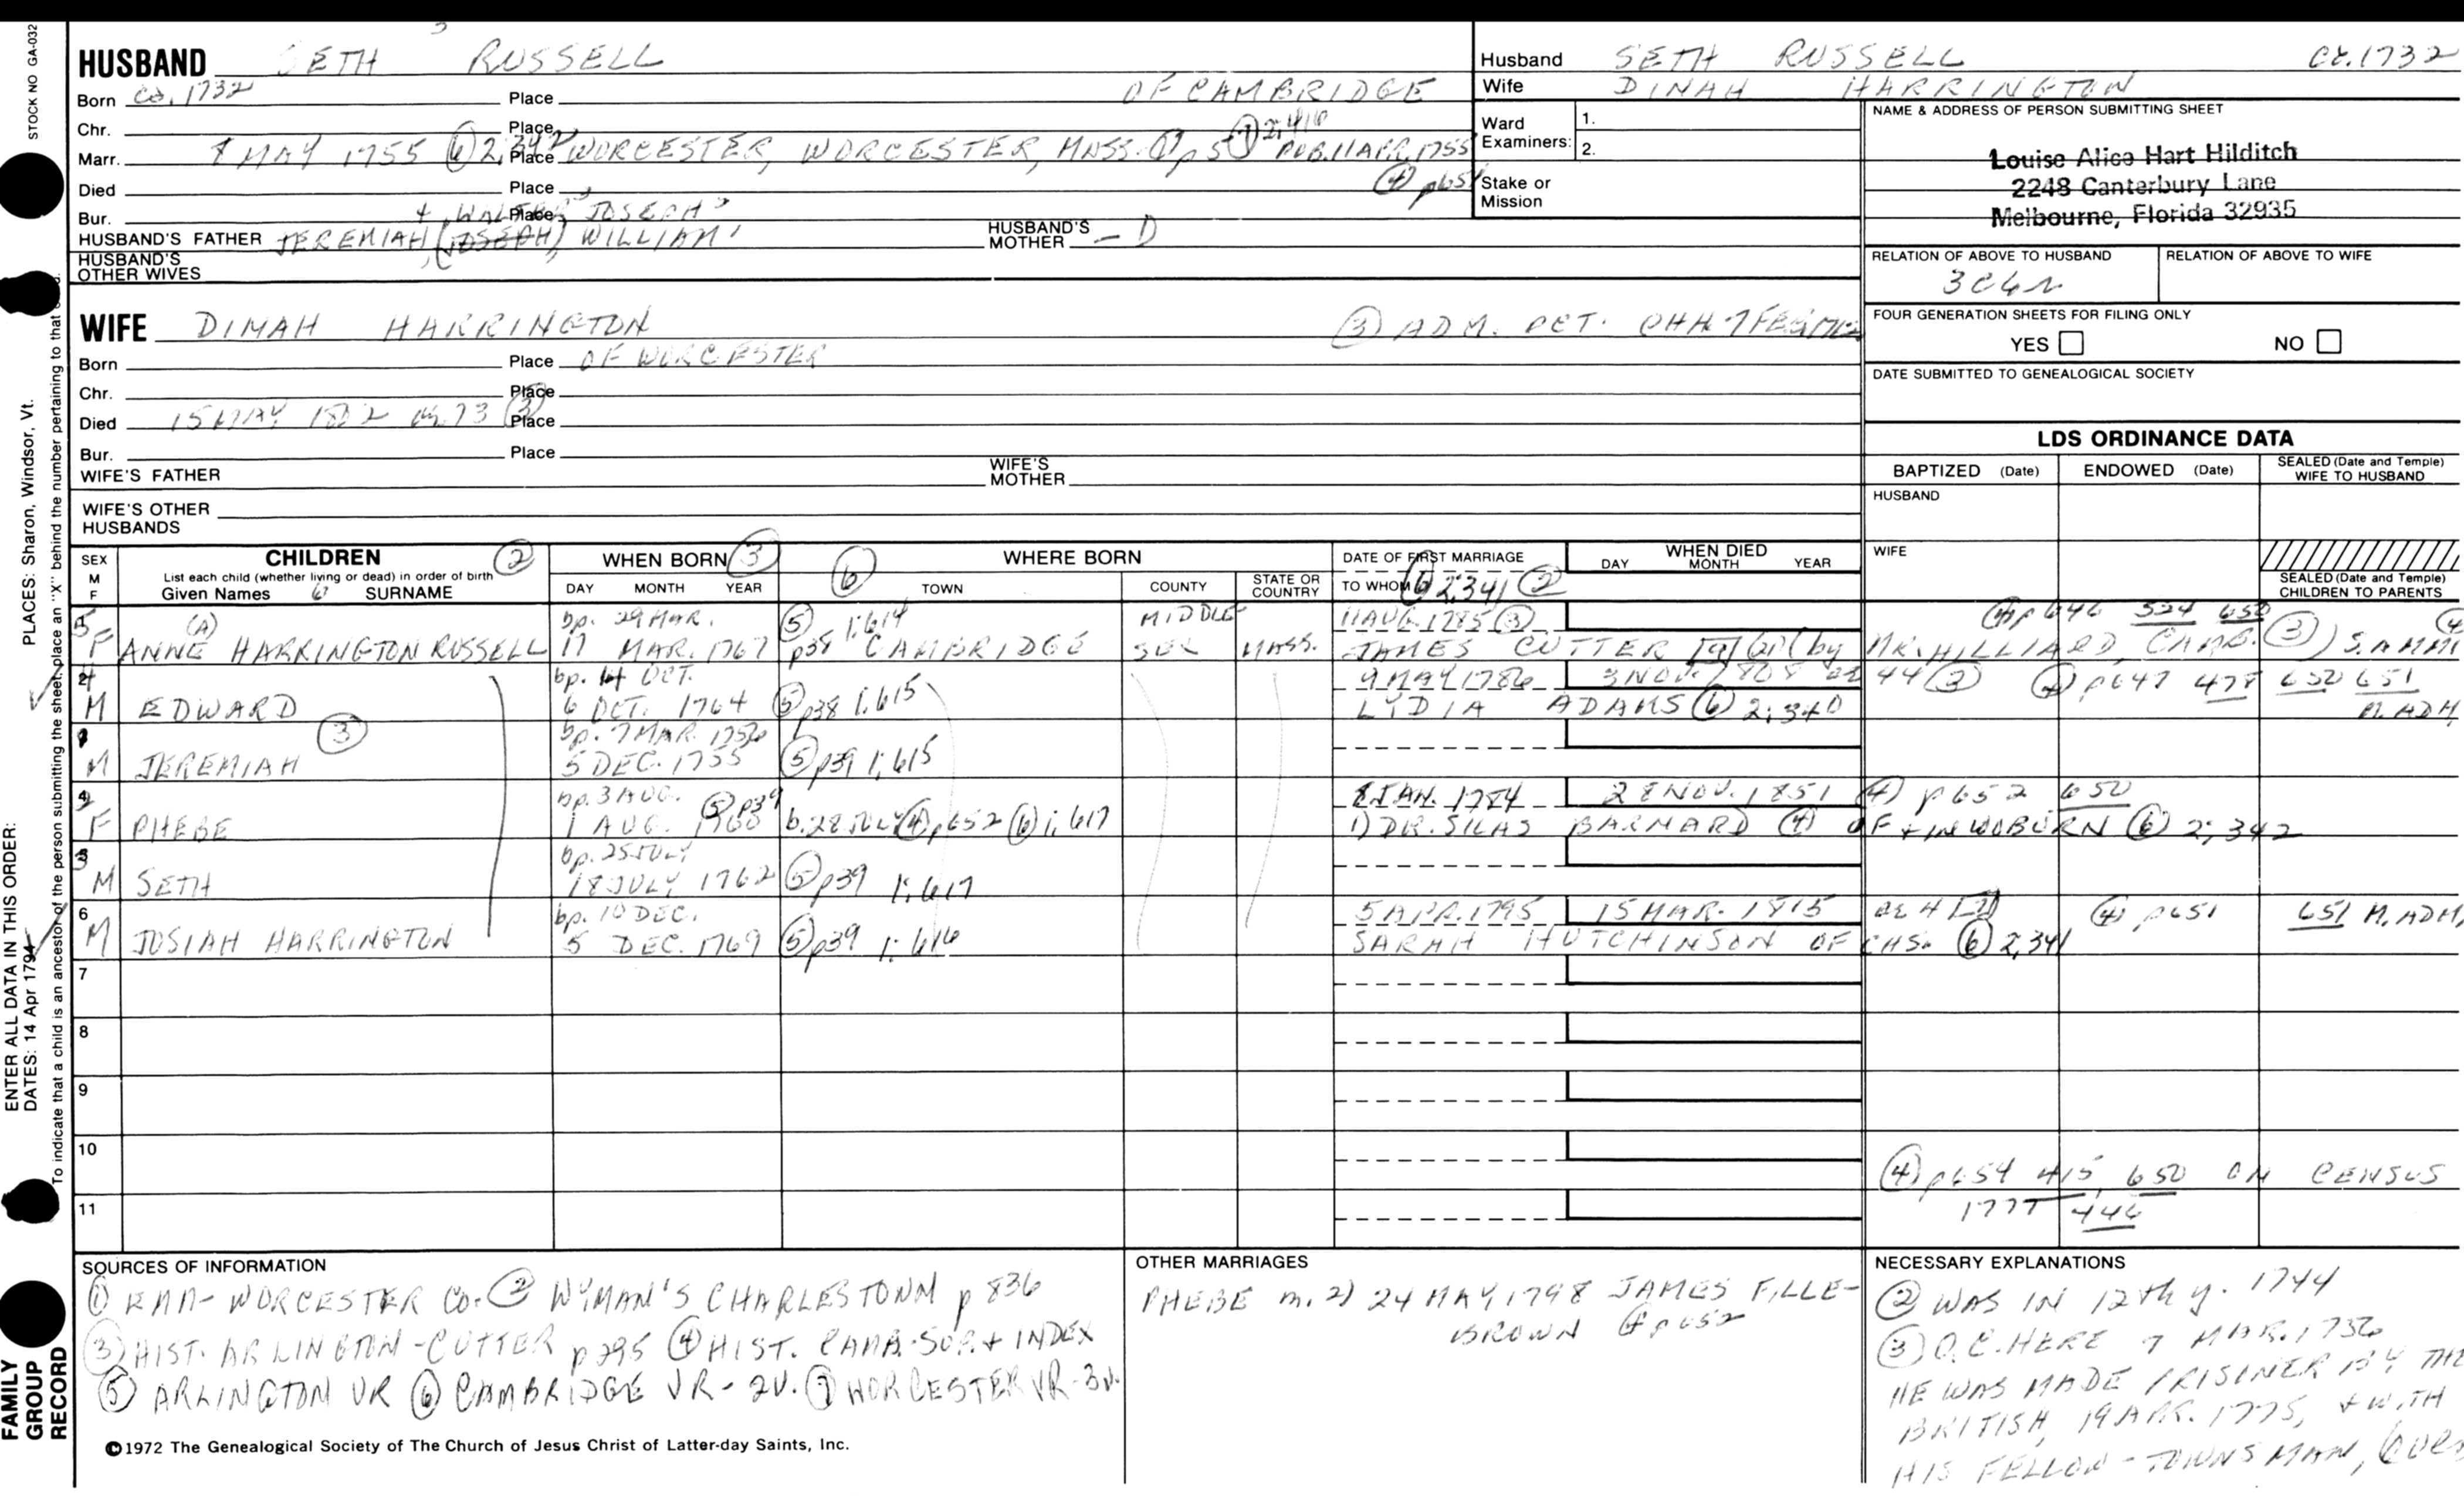 STOCK NO GA-032
PLACES: Sharon, Windsor, Vt.
ENTER ALL DATA IN THIS ORDER:
DATES: 14 Apr 1794
To indicate that a child is an ancestor of the person submitting the sheet, place an "X" behind the number pertaining to that
FAMILY
GROUP
RECORD
HUSBAND SETH 3 RUSSELL
Born ca. 1732 Place OF CAMBRIDGE
Chr. Place
Marr. 8 MAY 1755 (6) 2:342 Place WORCESTER, WORCESTER, MASS. (1) p 5 (7) 2,416 PUB. 11 APR. 1755
Died Place (4) p651
Bur. Place
HUSBAND'S FATHER JEREMIAH 4, WALTER 3, JOSEPH 2 (JOSEPH) WILLIAM 1 HUSBAND'S MOTHER — D
HUSBAND'S
OTHER WIVES
Husband SETH RUSSELL ca. 1732
Wife DINAH HARRINGTON
Ward 1.
Examiners: 2.
Stake or
Mission
NAME & ADDRESS OF PERSON SUBMITTING SHEET
Louise Alice Hart Hilditch
2248 Canterbury Lane
Melbourne, Florida 32935
RELATION OF ABOVE TO HUSBAND RELATION OF ABOVE TO WIFE
3C6R
FOUR GENERATION SHEETS FOR FILING ONLY
YES NO
DATE SUBMITTED TO GENEALOGICAL SOCIETY
WIFE DINAH HARRINGTON (3) ADM. PCT. CHH 7 FEB
Born Place OF WORCESTER
Chr. Place
Died 15 MAY 1802 ae 73 (3) Place
Bur. Place
WIFE'S FATHER WIFE'S MOTHER
WIFE'S OTHER
HUSBANDS
LDS ORDINANCE DATA
BAPTIZED (Date) ENDOWED (Date) SEALED (Date and Temple) WIFE TO HUSBAND
HUSBAND
WIFE
SEALED (Date and Temple)
CHILDREN TO PARENTS
SEX
M
F
CHILDREN (2)
List each child (whether living or dead) in order of birth
Given Names 6 SURNAME
WHEN BORN (3)
DAY MONTH YEAR
(6) WHERE BORN
TOWN COUNTY STATE OR COUNTRY
DATE OF FIRST MARRIAGE
TO WHOM (6) 2,341 (2)
WHEN DIED
DAY MONTH YEAR
5 bp. 29 MAR. (5) 1:614 MIDDLE 11 AUG. 1785 (3) (4) p 646 524 650
F (A) ANNE HARRINGTON RUSSELL 17 MAR. 1767 p38 CAMBRIDGE SEX MASS. JAMES CUTTER (by MR. HILLIARD, CAMB. (3)) S. AMM
4 bp. 14 OCT. 9 MAY 1786 3 NOV. 1808 ae 44 (3) (4) p647 478 650 651
M EDWARD 6 OCT. 1764 (5) p38 1:615 LYDIA ADAMS (6) 2:340 M. ADM,
1 bp. 7 MAR. 1756
M JEREMIAH (3) 5 DEC. 1755 (5) p39 1:615
2 bp. 3 AUG. (5) p39 8 JAN. 1784 28 NOV. 1851 (4) p652 650
F PHEBE 1 AUG. 1760 b. 28 JULY (4) p652 (6) 1:617 1) DR. SILAS BARNARD (4) OF + IN WOBURN (6) 2:342
3 bp. 25 JULY
M SETH 18 JULY 1762 (5) p39 1:617
6 bp. 10 DEC. 5 APR. 1795 15 MAR. 1815 ae 4 (4) p651 651 M. ADM,
M JOSIAH HARRINGTON 5 DEC. 1769 (5) p39 1:616 SARAH HUTCHINSON OF CHS. (6) 2,341
7
8
9
10
(4) p654 415, 650 ON CENSUS
11
1777 446
SOURCES OF INFORMATION
(1) WORCESTER CO. (2) WYMAN'S CHARLESTOWN p 836
(3) HIST. ARLINGTON - CUTTER p 295 (4) HIST. CAMB. SUP. + INDEX
(5) ARLINGTON VR (6) CAMBRIDGE VR - 2V. (7) WORCESTER VR - 3V.
©1972 The Genealogical Society of The Church of Jesus Christ of Latter-day Saints, Inc.
OTHER MARRIAGES
PHEBE m. 2) 24 MAY 1798 JAMES FILLE-
BROWN (4) p 652
NECESSARY EXPLANATIONS
(2) WAS IN 12th y. 1744
(3) O.C. HERE 7 MAR. 1756
HE WAS MADE PRISINER BY THE
BRITISH, 19 APR. 1775, + WITH
HIS FELLOW - TOWNSMAN,